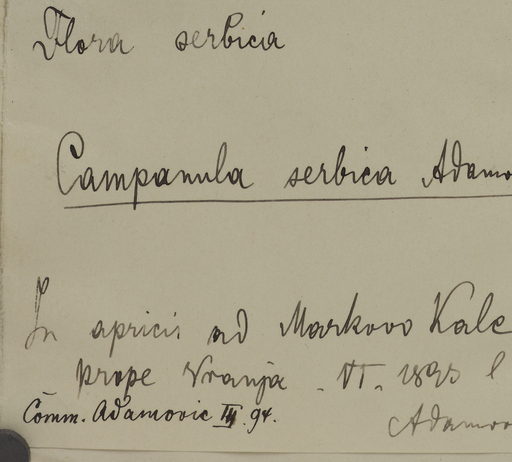 Flora serbica
Campanula serbica Adamo
In apricis ad Markovo Kale
prope Vranja. VI. 1893 l
Comm. Adamovic III. 94.
Adamov